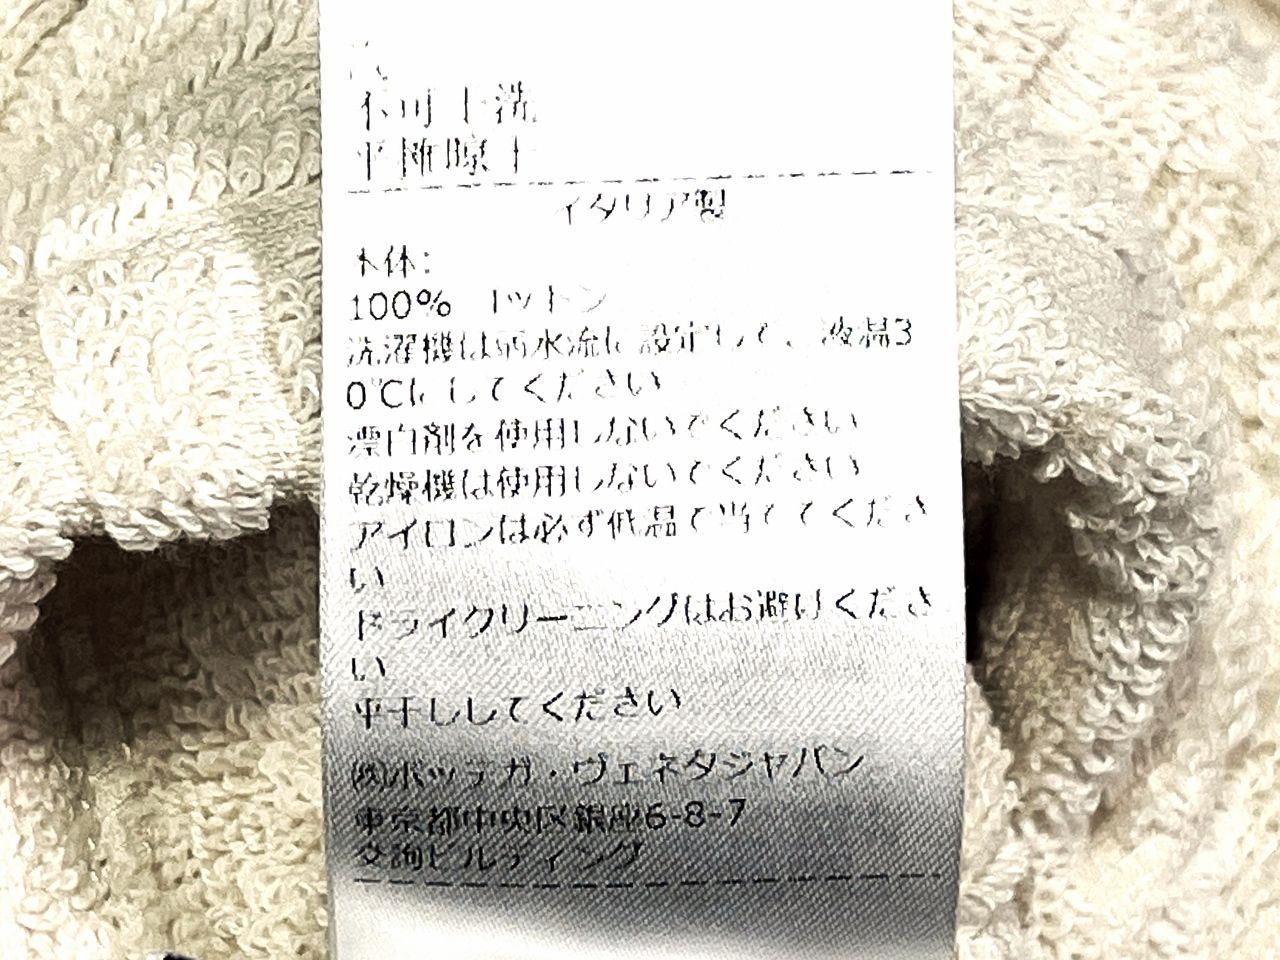 不可干洗
平摊晾干
イタリア製
本体:
100% コットン
洗濯機は弱水流に設定して、液温3
0℃にしてください
漂白剤を使用しないでください
乾燥機は使用しないでください
アイロンは必ず低温で当ててくださ
い
ドライクリーニングはお避けくださ
い
平干ししてください
㈱ボッテガ・ヴェネタジャパン
東京都中央区銀座6-8-7
交詢ビルディング